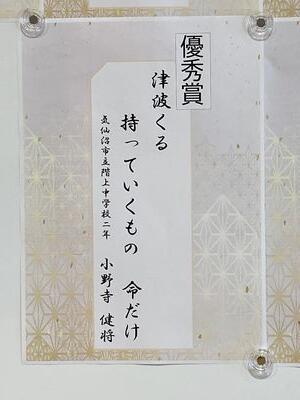 優秀賞
津波くる
持っていくもの 命だけ
気仙沼市立階上中学校二年 小野寺 健将